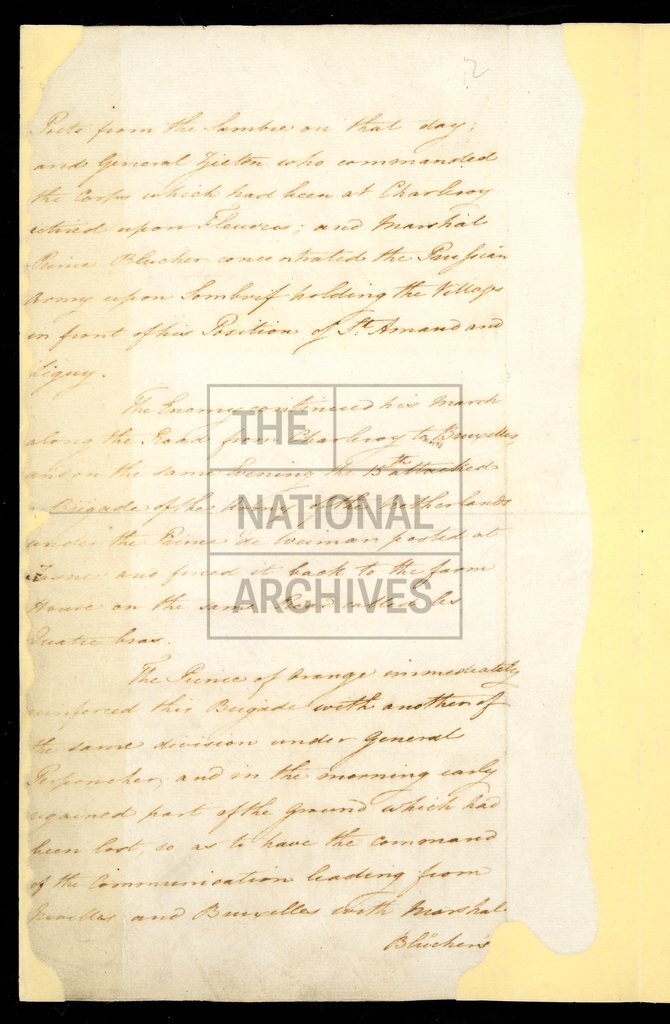 2
Posts from the Sambre on that day;
and General Zieten who commanded
the Corps which had been at Charleroy
retired upon Fleurus; and Marshal
Prince Blucher concentrated the Prussian
Army upon Sombref holding the Villages
in front of his Position of St. Amand and
Ligny.
The Enemy continued his March
along the Road from Charleroy towards Bruxelles
and on the same Evening the 15th attacked
a Brigade of the Army of the Netherlands
under the Prince de Weimar posted at
Frasne and forced it back to the farm
House on the same Road called les
Quatre bras.
The Prince of Orange immediately
reinforced this Brigade with another of
the same division under General
Perponcher, and in the morning early
regained part of the Ground which had
been lost, so as to have the command
of the Communication leading from
Nivelles and Bruxelles with Marshal
Blücher's
THE
NATIONAL
ARCHIVES